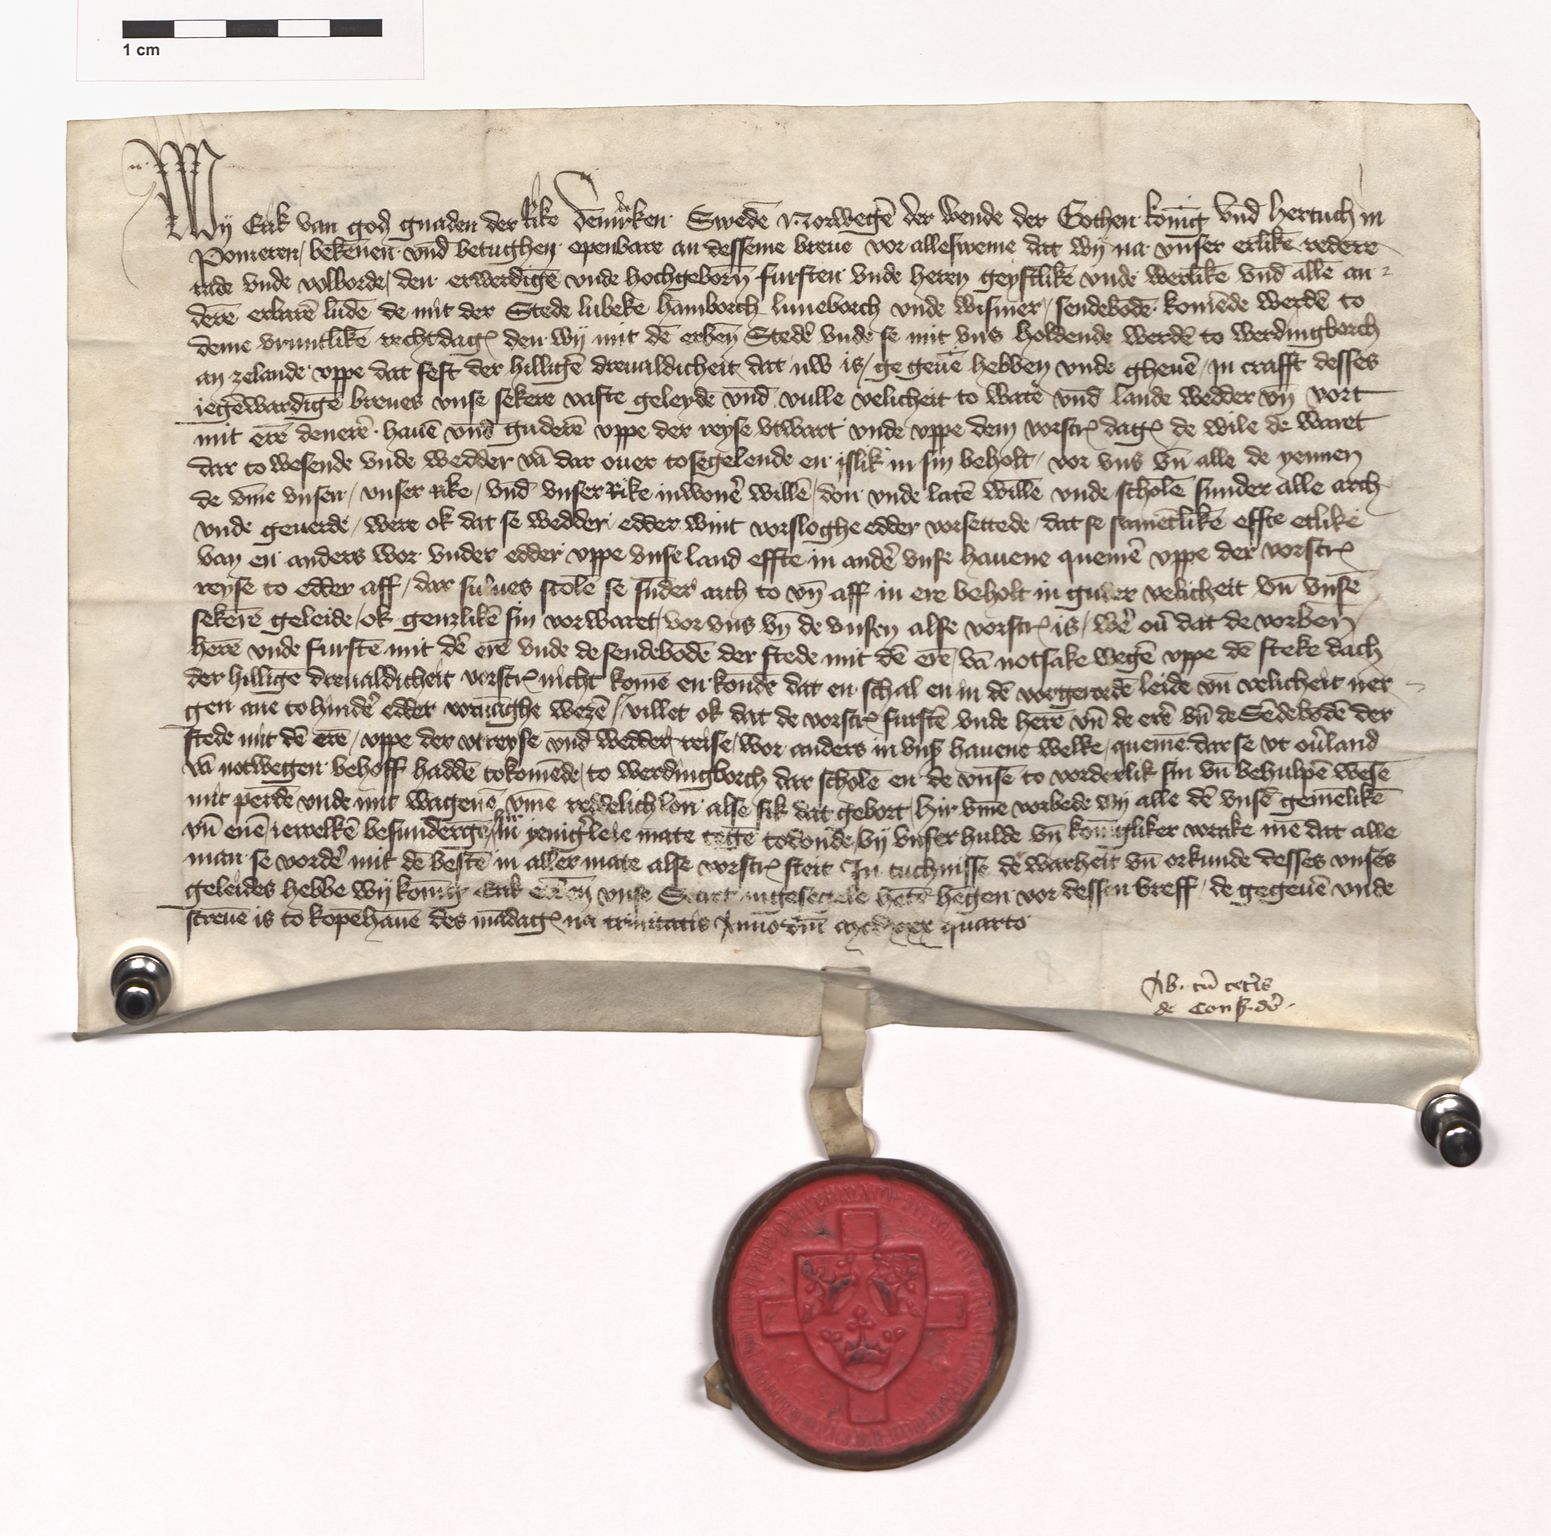 1 cm
Wij Erik van god gnaden der Rike denm̄rken Swedē Norwegē der wende der Gothen konīg vnd hertuch in
Pomeren / bekēnen vnd betughen openbare an desseme breue vor allesweme dat wij na vnser erlikē redere
rade vnde volborde / den erwerdigē vnde hochgeborn̄ fursten vnde heren geystlikē vnde werlikē vnd alle an
derē erbarē ludē de mit der Stede lubeke hamborch luneborch vnde wismer / sendebodē komēde werdē to
deme vruntlikē rechtdage den wij mit dē erben̄ Stedē vnde se mit vns holdende werdē to werdingborch
an zelande vppe dat fest der hilligē dreualdicheit dat nw is / ge geuē hebben vnde gheuē / in crafft desses
iegēwardigē breues vnse sekere vaste geleyde vnd vulle velicheit to watē vnd lande wedder vn̄ vort
mit erē denerē hauē vnd guderē vppe der reyse vtwart vnde vppe dem vorscr dage de wile de waret
dar to wesende vnde wedder vā dar ouer tosegelende en islik in sin beholt / vor vns vn̄ alle de yennen
de vm̄e vnsen / vnser rike / vnd vnser Rike inwonē willē / don vnde latē willē vnde scholē sunder alle arch
vnde geuerde / were ok dat se wedder / edder wint vorsloghe edder vorsettede / dat se sametlikē effte etlike
van en anders wor vnder edder vppe vnse land effte in andē vnse hauene quemē vppe der vorscr
reyse to edder aff / dar sulues scolē se sūder arch to vn̄ aff in ere beholt in guder velicheit vn̄ vnsē
sekerē geleide / ok genzlikē sin vorwaret / vor vns vn̄ de vnsen alse vorscr is / wē ou dat de vorben̄
herē vnde furstē mit dē erē vnde de sendebodē der stede mit dē erē / vā notsake wegē vppe dē steke dach
der hilligē dreualdicheit vorscr nicht komē en konde dat en schal en in dē vorgerordē leide vn̄ velicheit ner
gen ane to hinde edder vornāghe wezē / villet ok dat de vorscr furstē vnde herē vn̄ de erē vn̄ de Sēdebodē der
stede mit dē erē / vppe der vt reyse vnd wedder reise / wor anders in vns hauene welke / quemē dar se vt ou land
vā notwegen behoff haddē tokomēde / to werdingborch dar scholē en de vnsē to vorderlik sin vn̄ behulpē wesē
mit perdē vnde mit wagenē vm̄e redelich lon alse sik dat gebort / hir vm̄e vorbede wij alle dē vnsē gemēlikē
vn̄ enē iewelkē besundergē / hir in yenig leie mate tegē to donde / bij vnser hulde vn̄ konigliker wrake mē dat alle
man se vordē mit dē bestē in aller mate alse vorscr steit In tuchnisse de warheit vn̄ orkunde desses vnses
geleides hebbe wij konig Erik vnse Secret ingesegele hetē hēgen vor dessen breff / de gegeuē vnde
screuē is to kopēhauē des mādage na trinitatis Anno dm̄ mcdxxx quarto
Ab. cū ceteris
de Cons. dē